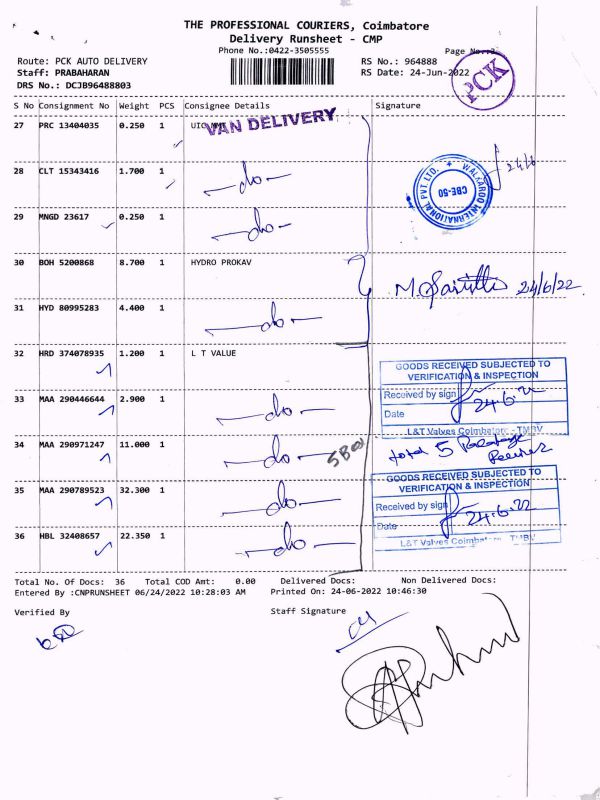 THE PROFESSIONAL COURIERS, Coimbatore
Delivery Runsheet - CMP
Phone No.:0422-3505555
Page No.:3
Route: PCK AUTO DELIVERY
RS No.: 964888
Staff: PRABAHARAN
RS Date: 24-Jun-2022
DRS No.: DCJB96488803
PCK
S No Consignment No Weight PCS Consignee Details Signature
27 PRC 13404035 0.250 1 UIC
VAN DELIVERY
28 CLT 15343416 1.700 1 -do-
24/6
WALKAROO INTERNATIONAL PVT. LTD. CBE-50
29 MNGD 23617 0.250 1 -do-
30 BOH 5200868 8.700 1 HYDRO PROKAV
24/6/22
31 HYD 80995283 4.400 1 -do-
32 HRD 374078935 1.200 1 L T VALUE
GOODS RECEIVED SUBJECTED TO
VERIFICATION & INSPECTION
Received by sign
24.6.22
Date
L&T Valves Coimbatore - TMBV
33 MAA 290446644 2.900 1 -do-
34 MAA 290971247 11.000 1 -do-
5 Box
total 5 Package
GOODS RECEIVED SUBJECTED TO
VERIFICATION & INSPECTION
Received by sign
24.6.22
Date
L&T Valves Coimbatore - TMBV
35 MAA 290789523 32.300 1 -do-
36 HBL 32408657 22.350 1 -do-
Total No. Of Docs: 36 Total COD Amt: 0.00 Delivered Docs: Non Delivered Docs:
Entered By :CNPRUNSHEET 06/24/2022 10:28:03 AM Printed On: 24-06-2022 10:46:30
Verified By Staff Signature